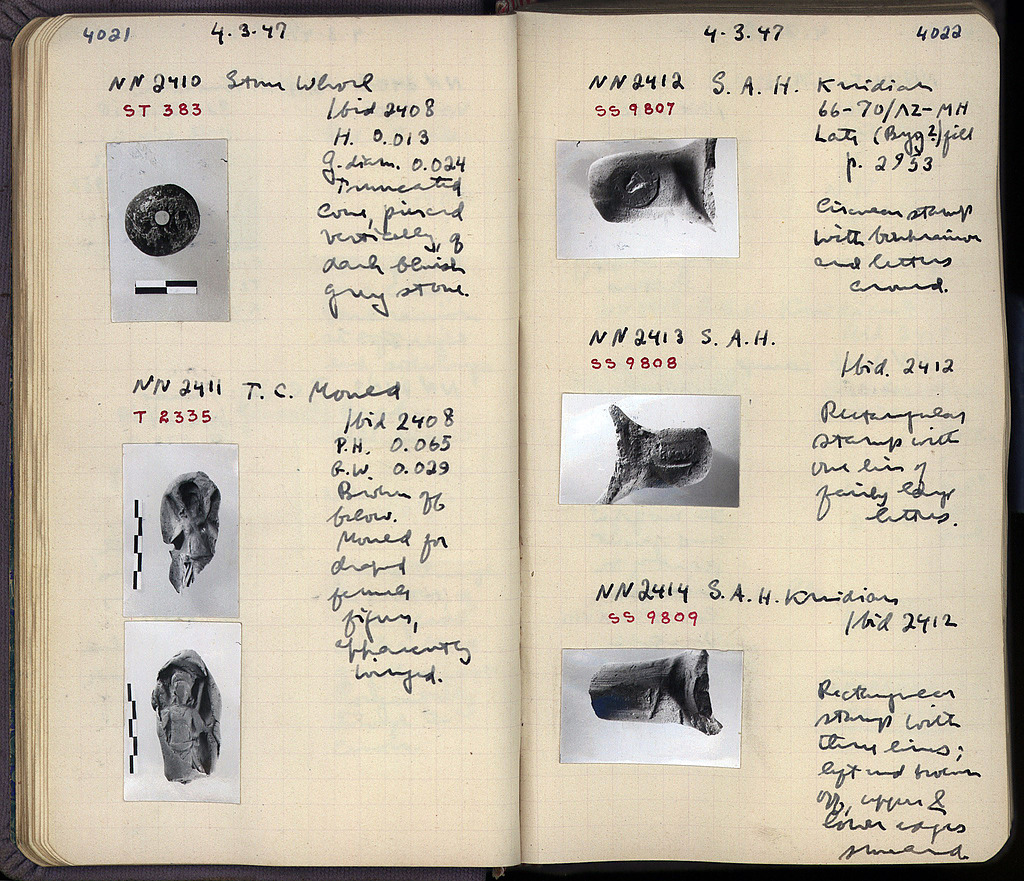 4021
4.3.47
NN 2410 Stone Whorl
ST 383
Ibid 2408
H. 0.013
G. diam. 0.024
Truncated
cone, pierced
vertically, of
dark bluish
grey stone.
NN 2411 T. C. Mould
T 2335
Ibid 2408
P.H. 0.065
G.W. 0.029
Broken off
below.
Mould for
draped
female
figure,
apparently
winged.
4.3.47
4022
NN 2412 S. A. H. Knidian
SS 9807
66-70/ΛΖ-ΜΗ
Late (Byz?) fill
p. 2953
Circular stamp
with boukranion
and letters
around.
NN 2413 S. A. H.
SS 9808
Ibid. 2412
Rectangular
stamp with
one line of
fairly large
letters.
NN 2414 S. A. H. Knidian
SS 9809
Ibid 2412
Rectangular
stamp with
three lines;
left end broken
off, upper &
lower edges
smeared.